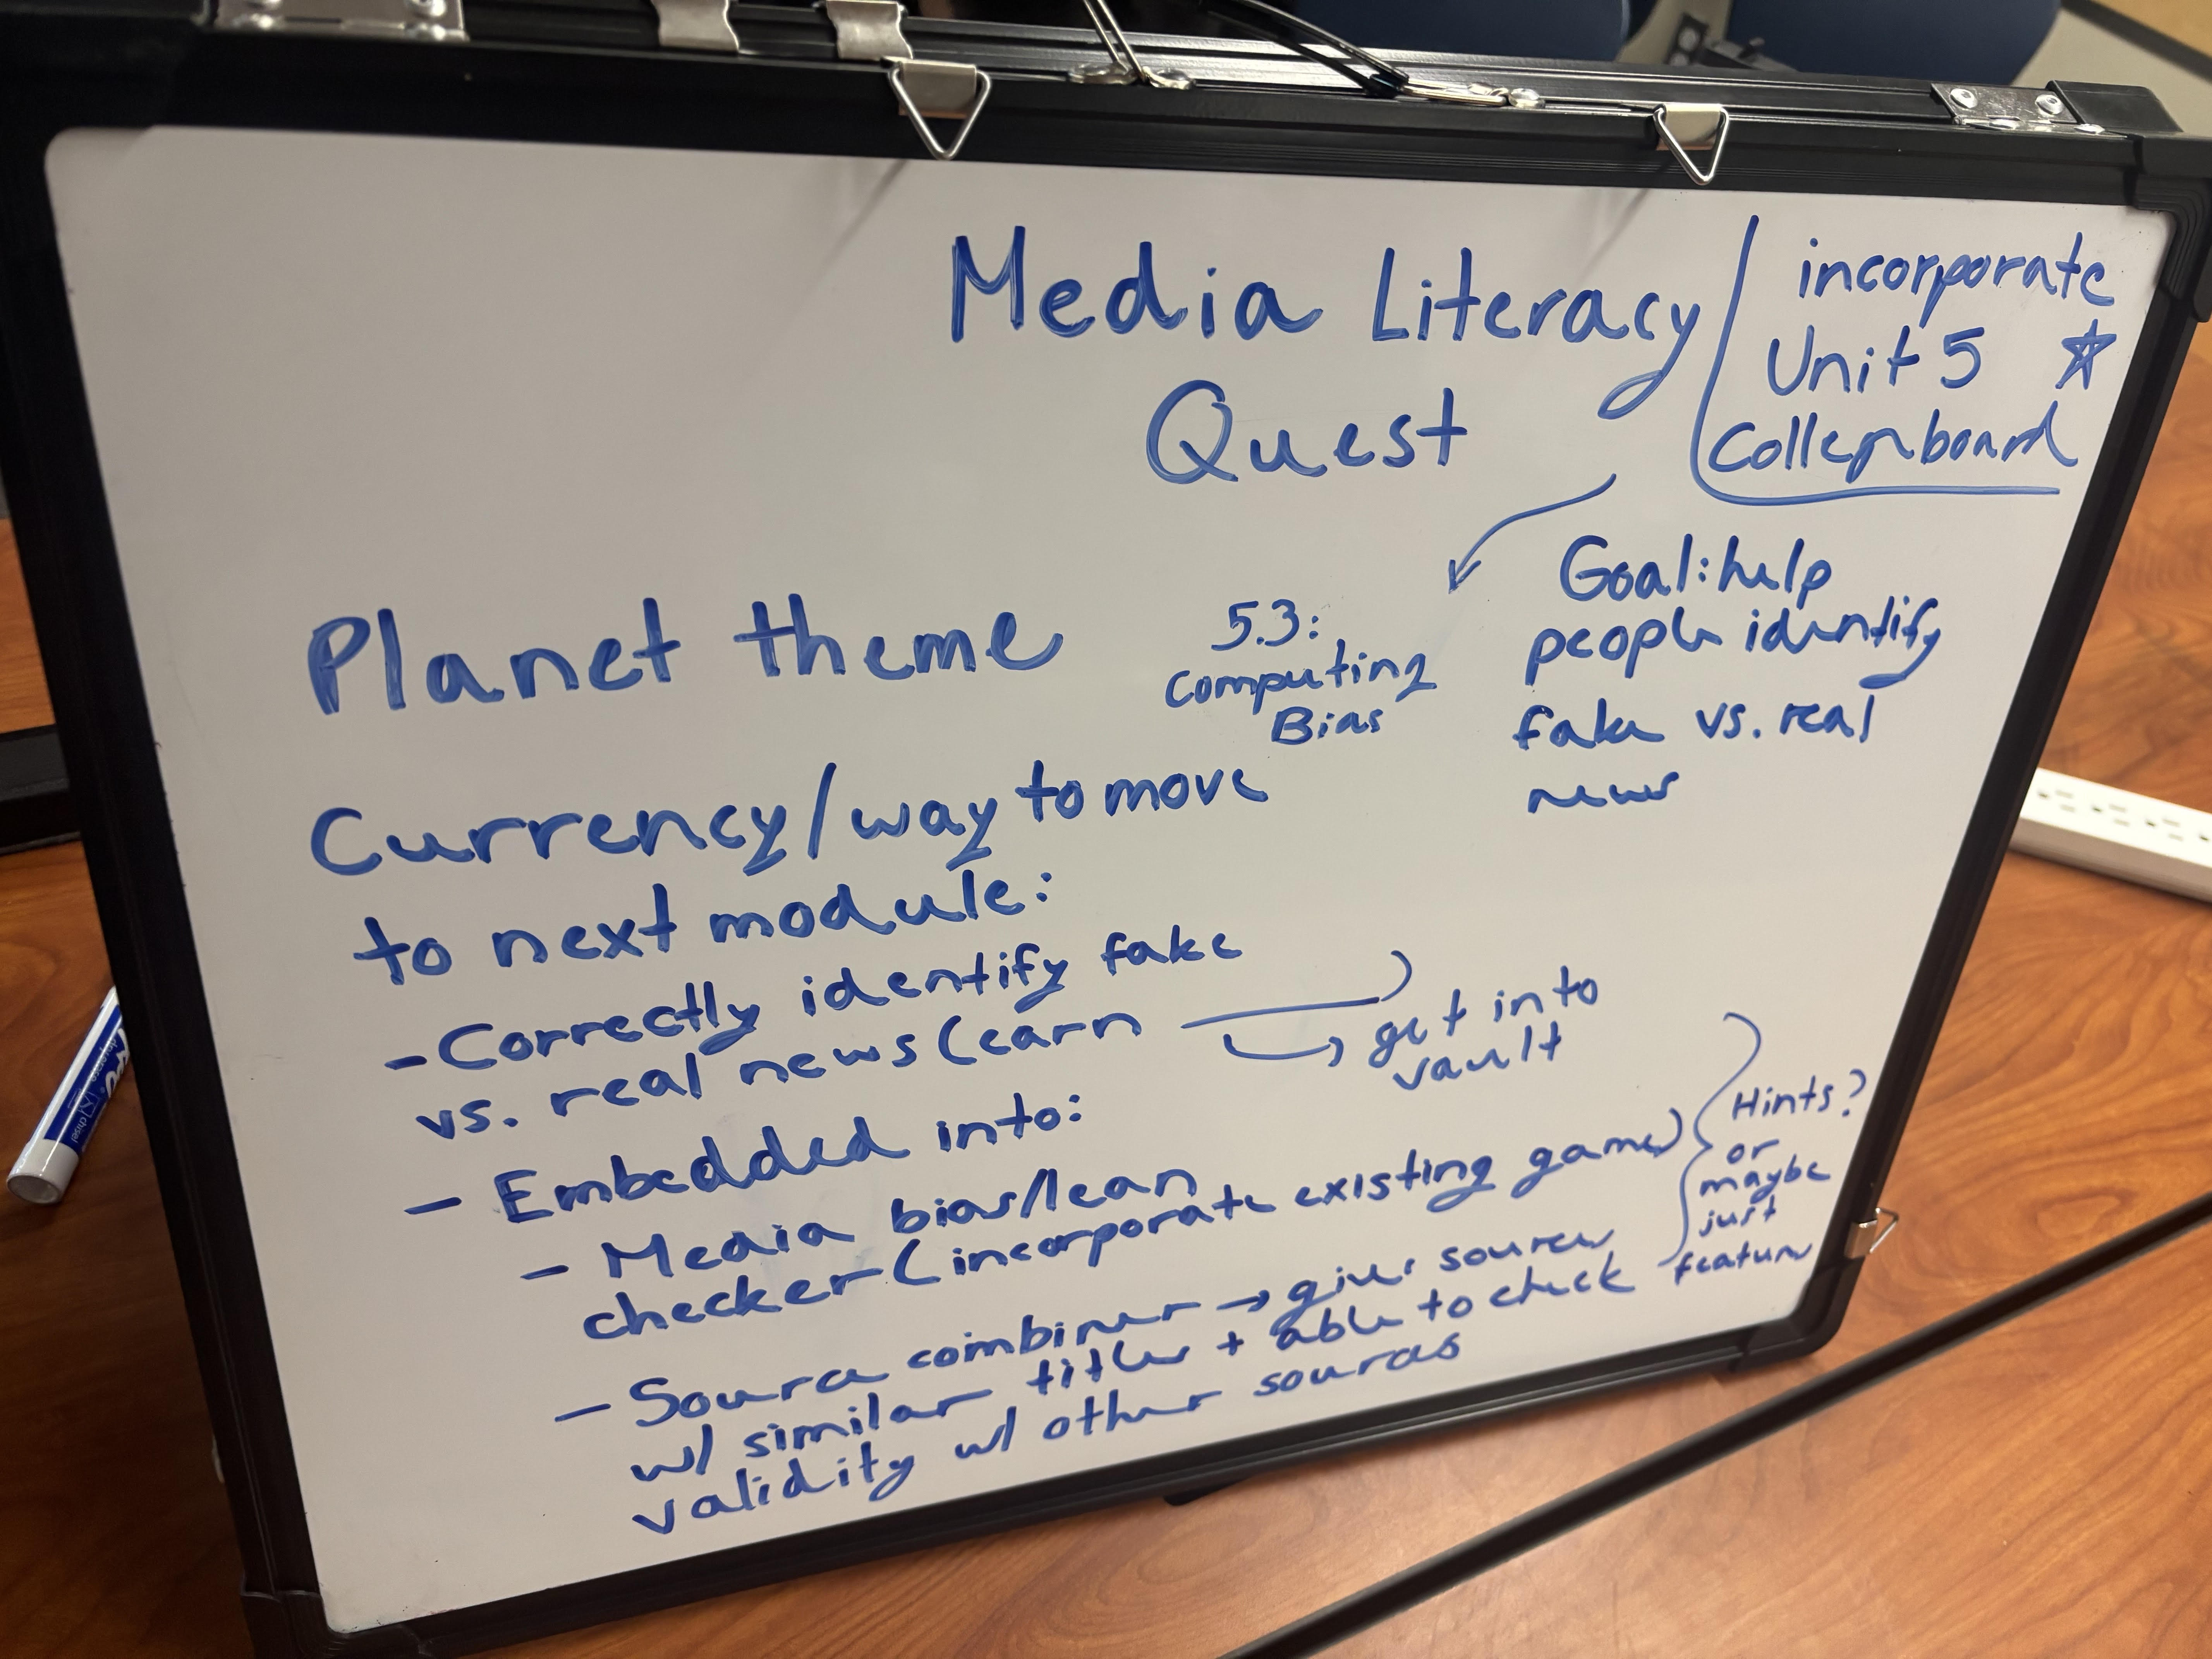 Media Literacy
Quest
incorporate
Unit 5 ☆
Collegeboard
Goal: help
people identify
fake vs. real
news
5.3:
Computing
Bias
Planet theme
Currency/way to move
to next module:
- Correctly identify fake
vs. real news (earn ____)
get into
vault
- Embedded into:
- Media bias/lean
checker (incorporate existing game)
- Source combiner → gives sources
w/ similar titles + able to check
validity w/ other sources
Hints?
or
maybe
just
feature